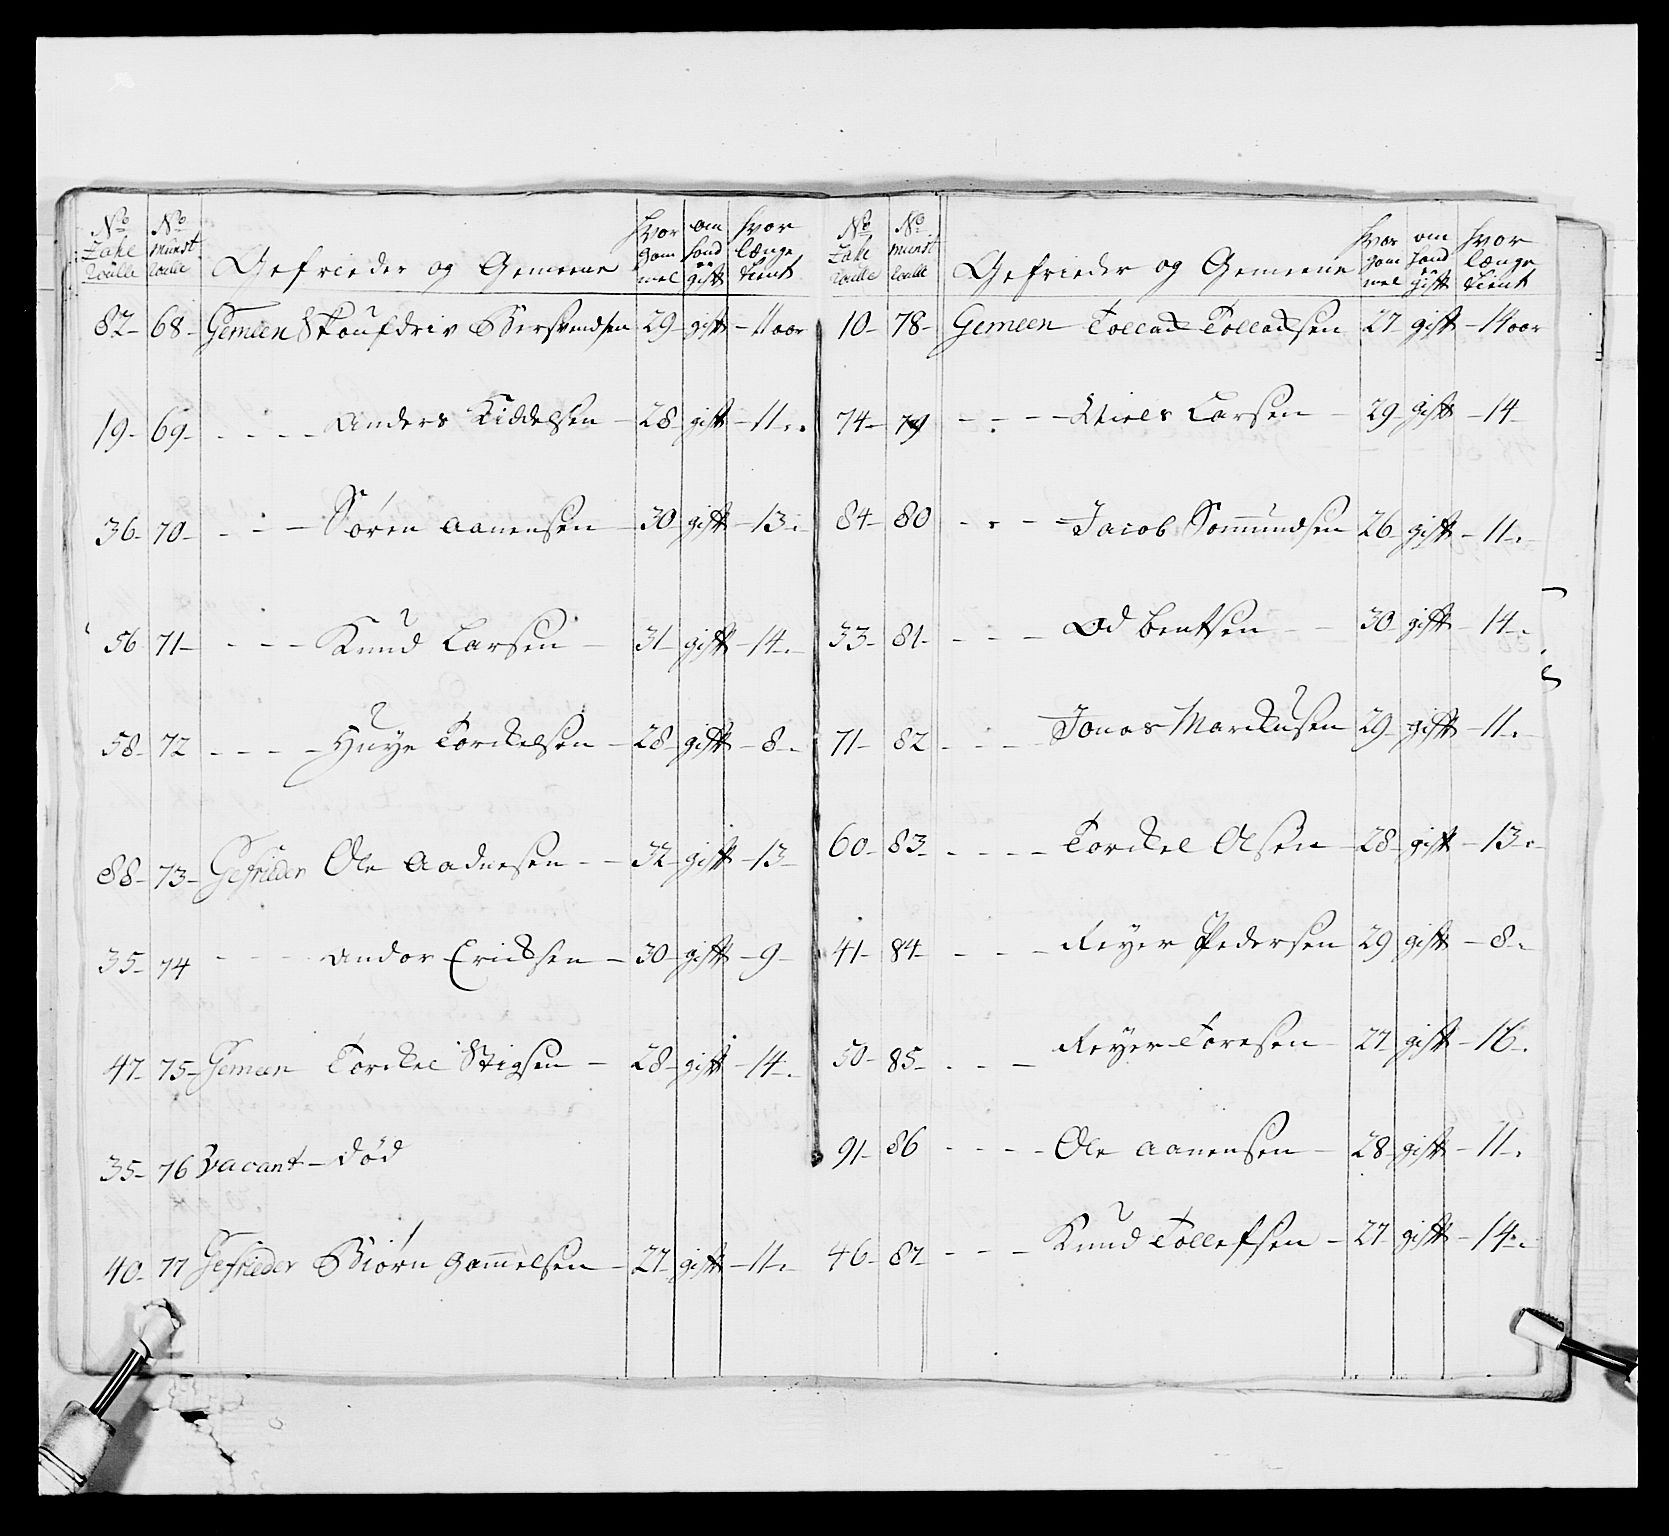 No Zahl Roulle | No Munst Roulle | Gefrieder og Gemeene | hvor gam mel | om hand er gift | hvor længe tient
82 - 68 - Gemeen Skoufdriv Bersvendsen 29 - gift - 11 aar
19 - 69 - - - - Anders Kiddelsen - 28 - gift - 11 -
36 - 70 - - - - Søren Aanensen - 30 gift - 13 -
56 71 - - - - Knud Larsen - 31 - gift - 14 -
58 - 72 - - - - Huye Torckelsen - 28 - gift - 8 -
88 - 73 - Gefrieder Ole Aadnesen - - 32 - gift - 13 -
35 - 74 - - - Andor Ericksen - 30 - gift - 9 -
47 - 75 - Gemeen Torckel Stigsen - 28 - gift - 14 -
35 - 76 Vacant - død
40 - 77 Gefrieder Biørn Gammelsen - 27 - gift - 11 -
No Zahl Roulle | No Munst Roulle | Gefrieder og Gemeene | hvor gam mel | om hand er gift | hvor længe tient
10 - 78 - Gemeen Tollad Tolladsen 27 gift - 14 aar
74 - 79 - - - Niels Larsen - 29 gift - 14 -
84 - 80 - - - Jacob Sommundsen 26 gift - 11 -
33 - 81 - - - - Od Bentsen - - 30 gift - 14 -
71 - 82 - - - Jonas Marckusen 29 - gift - 11 -
60 - 83 - - - - Torckel Olsen - 28 - gift - 13 -
41 - 84 - - - - Reyer Pedersen 29 gift - 8 -
50 - 85 - - - - Reyer Toresen - 27 gift - 16 -
91 - 86 - - - - Ole Aanensen - 28 - gift - 11 -
46 - 87 - - - - Knud Tollefsen - 27 gift - 14 -